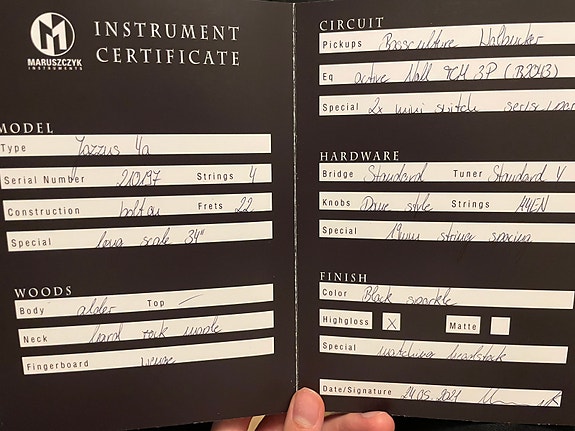 M
MARUSZCZYK
INSTRUMENTS
INSTRUMENT
CERTIFICATE
MODEL
Type Jazzus 4a
Serial Number 210197 Strings 4
Construction bolt on Frets 22
Special long scale 34"
WOODS
Body alder Top —
Neck hard rock maple
Fingerboard wenge
CIRCUIT
Pickups Bassculture
Eq active Noll TCM 3P
Special 2x mini switch
HARDWARE
Bridge Standard Tuner Standard
Knobs Dome style Strings
Special 19mm string spacing
FINISH
Color Black sparkle
Highgloss X Matte
Special matching headstock
Date/Signature 24.05.2021